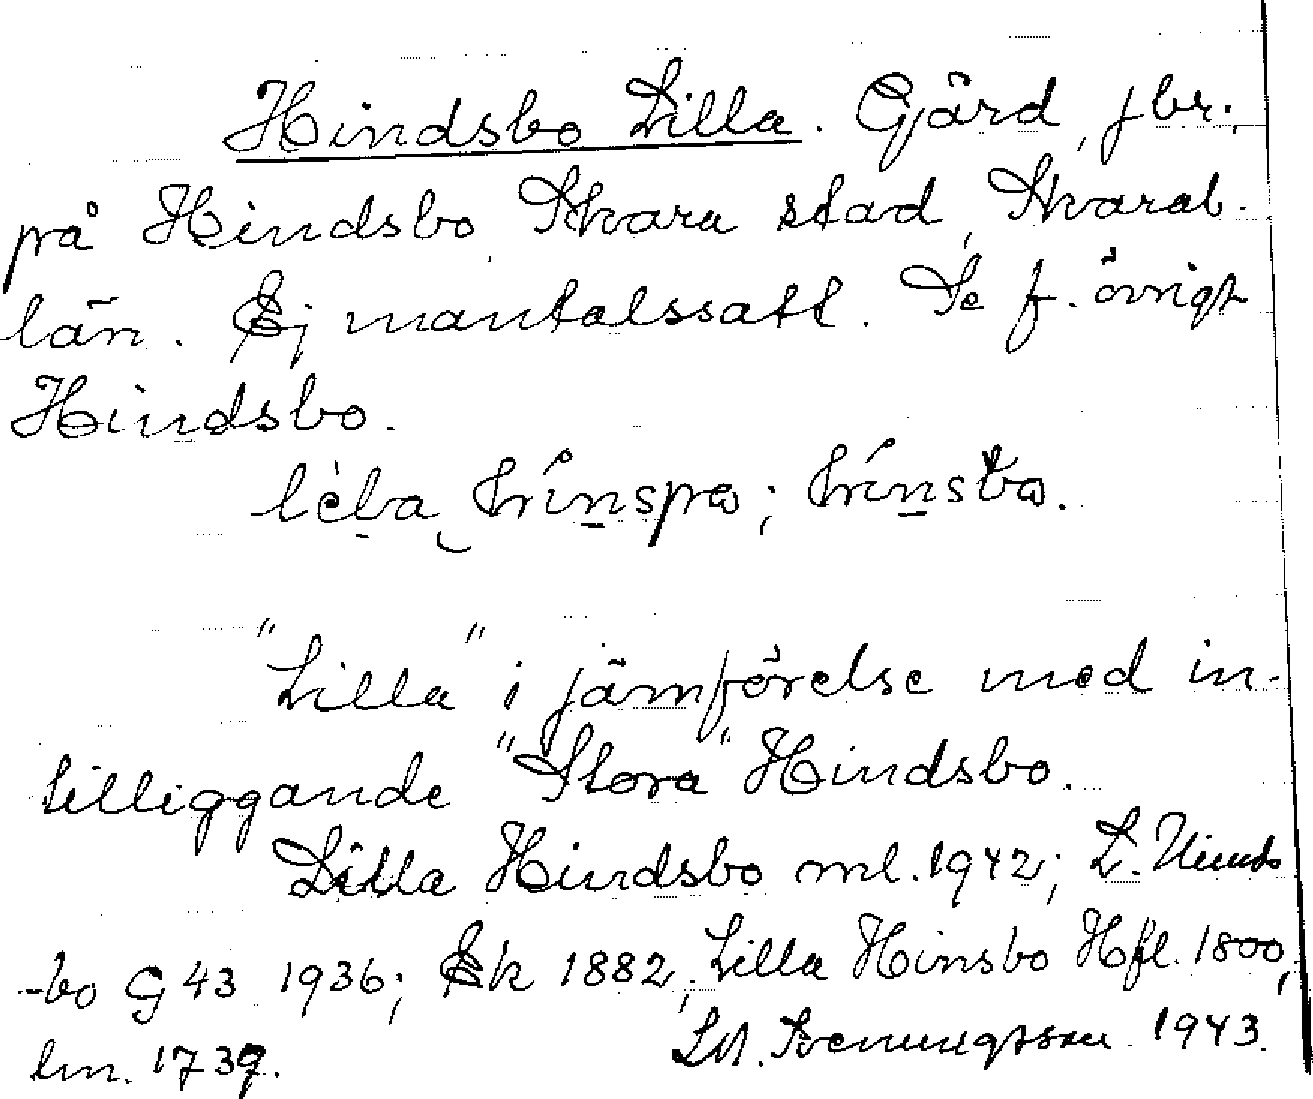 Hindsbo Lilla. Gård, jbr.,
på Hindsbo, Skara stad, Skarab.
län. Ej mantalssatt. Se f. övrigt
Hindsbo.
"Lilla" i jämförelse med in-
tilliggande "Stora" Hindsbo.
Lilla Hindsbo ml. 1942; L. Hinds
-bo G 43 1936; Ek 1882; Lilla Hinsbo Hfl. 1800;
lm. 1739.
1943.